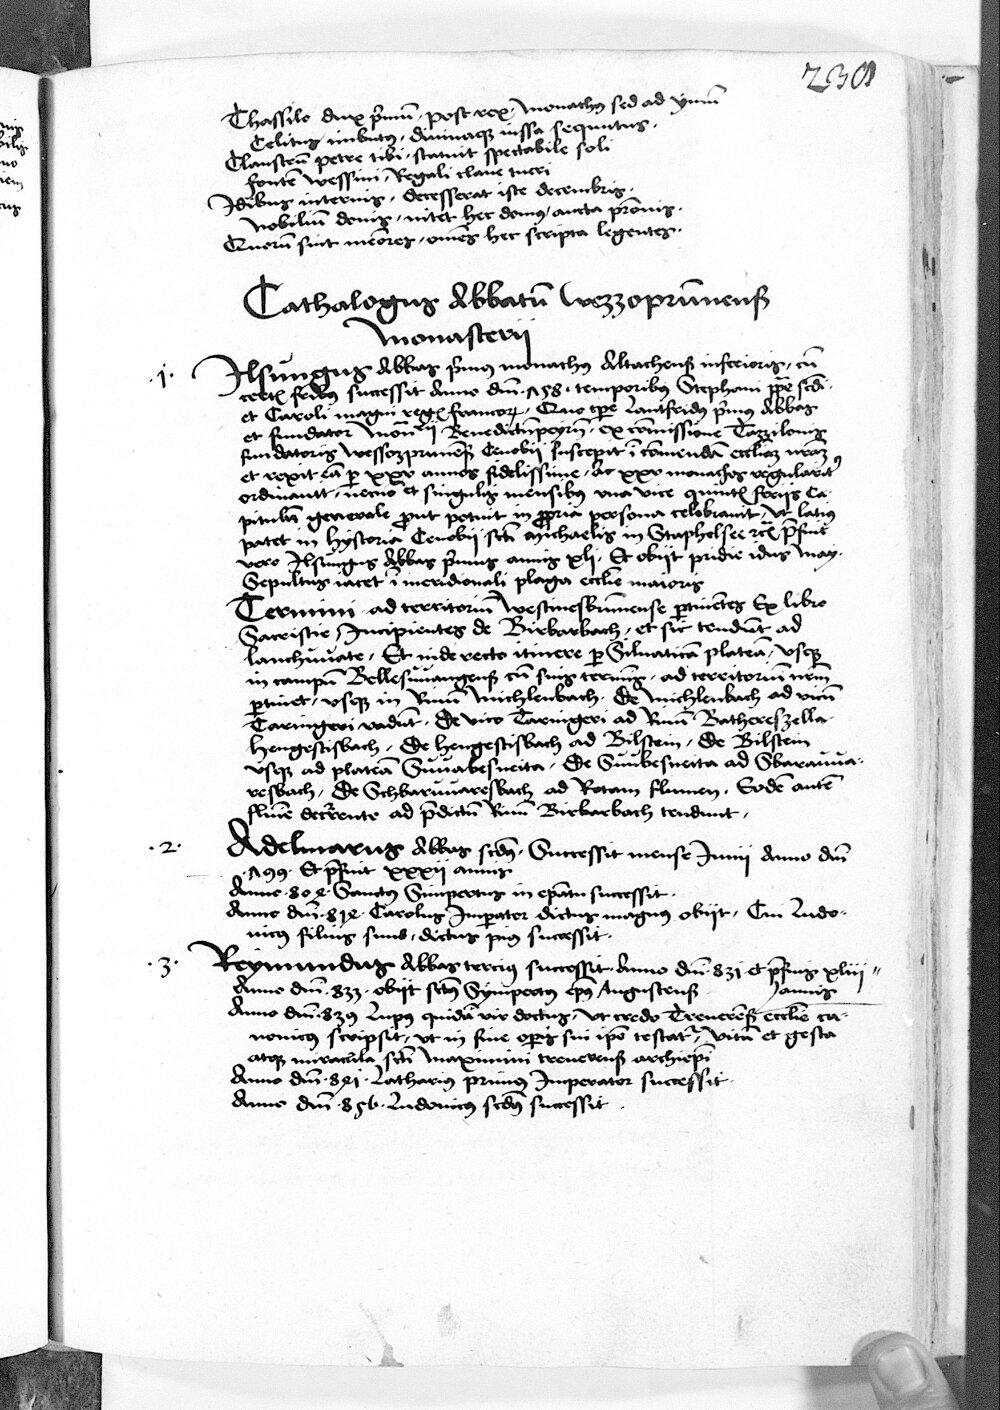 230
Thassilo dux p̄mū, post rex, monachꝯ sed ad ymū
Celitus imbutꝯ, diuinaqꝫ iussa sequutus.
Claustrū petre tibi, statuit spectabile soli
fontē wessini, Regali claue tueri
Idibus internis, decesserat iste decembris.
Nobiliū donis, nitet hec domꝯ, aucta p̄onis.
Quorū sint mēores, om̄es hec scripta legentes.
Cathalogus Abbatū Wezzoprūnenß
Monasterii
.1. Ilsungus Abbas p̄imus monachus Altachenß inferioris, cū
certꝭ fr̄ibus successit Anno dnī. 758. temporibus Stephani pp̄e scd̄i.
et Caroli magni regꝭ francorꝝ, Quo tp̄e Lantfridꝯ p̄imus Abbas
et fundator Mon̄rii Benedictūpeyrn̄, ex cōmissione Tazzilonis
fundatoris wessozprunenß Cenobii suscepit ī cōmendā eccliaꝫ nr̄aꝫ
et rexit eā ꝑ xxx annos fidelissime, Ac xxv monachos regularitꝰ
ordinauit, necno et singulis mensibus vna vice quintꝭ ferijs Ca-
pitulū generale ꝓut potuit in ꝓpria persona celebrauit, Vt latius
patet in hystoria Cenobii scti Michaelis in Staphelsee rc̄ p̄fuit
vero Ilsungus Abbas p̄imus annis xli. Et obijt pridie idus May.
Sepultus iacet ī meridionali plaga ecclīe maioris
Termini ad territoriū Westinesbrunnense ꝑtinētes Ex libro
Sacristie, Incipientes de Birbarbach, et sic tendūt ad
lanchuuate, Et inde recto itinere ꝑ Siluaticā plateā, vsqꝫ
in campū Bellesuuangenß cū suis terminis, ad territoriū nr̄m
ꝑtinet, vsqꝫ in Riuū Michlenbach. De Michlenbach ad vicū
Taringeri vadūt. De vico Taringeri ad Riuū Bathereszella
hengestisbach, De hengestisbach ad Bilstein, De Bilstein
vsqꝫ ad plateā Suuabesneita, De Suubesneita ad Sbarauua-
resbach, De Schbaruuaresbach ad Rotam flumen. Eodē autē
fluīe decurrente ad p̄dictū Riuū Birbarbach tendunt.
.2. Adelmarus Abbas scd̄s. Successit mense Junii Anno dnī
.799. Et p̄fuit xxxii annis
Anno .804. Sanctꝯ Simpertus in ep̄atu successit.
Anno dnī. 814. Carolus Imperator dictus magnus obijt, Cui Ludo-
uicꝯ filius suus, dictus pius successit.
.3. Reymundus Abbas tercius successit. Anno dnī. 831 et p̄fuit xliii
annis
Anno dnī. 833. obijt sctꝯ Sympertꝯ ep̄us Augustenß
Anno dnī. 839. Lupꝯ quidā vir doctus, Vt credo Treuerēß ecclīe ca-
nonicus scripsit, vt in fine oꝑis sui ip̄e testat͛, Vitā et gesta
atqꝫ miracula scti Maximini treuerenß archiep̄i
Anno dnī. 841. Lotharius primus Imperator successit.
Anno dnī. 856. Ludouicus scd̄s successit.